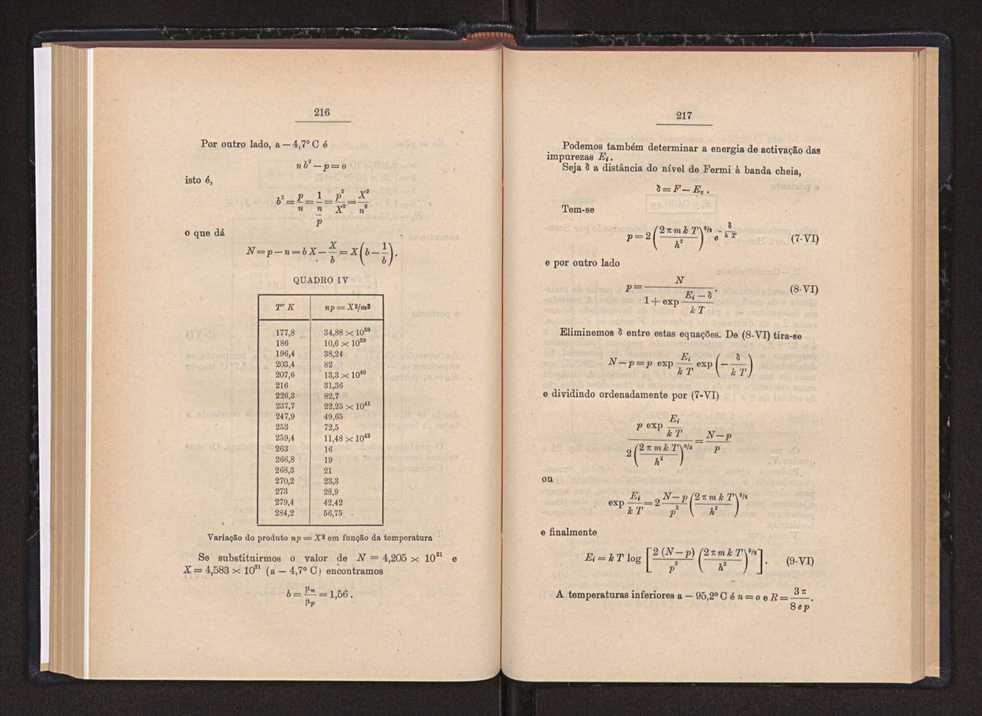 216
Por outro lado, a — 4,7° C é
n b² — p = o
isto é,
b² = p/n = 1/(n/p) = p²/X² = X²/n²
o que dá
N = p — n = b X — X/b = X (b — 1/b).
QUADRO IV
T° K np = X²/m³
177,8 34,88 × 10³⁸
186 10,6 × 10³⁹
196,4 38,24
203,4 82
207,6 13,3 × 10⁴⁰
216 31,36
226,3 82,7
237,7 22,25 × 10⁴¹
247,9 49,65
253 72,5
259,4 11,48 × 10⁴²
263 16
266,8 19
268,3 21
270,2 23,3
273 28,9
279,4 42,42
284,2 56,75
Variação do produto np = X² em função da temperatura
Se substituirmos o valor de N = 4,205 × 10²¹ e
X = 4,583 × 10²¹ (a — 4,7° C) encontramos
b = μn/μp = 1,56.
217
Podemos também determinar a energia de activação das
impurezas Ei.
Seja δ a distância do nível de Fermi à banda cheia,
δ = F — Ev.
Tem-se
p = 2 (2 π m k T / h²)^3/2 e^(— δ / k T) (7-VI)
e por outro lado
p = N / (1 + exp (Ei — δ) / k T). (8-VI)
Eliminemos δ entre estas equações. De (8-VI) tira-se
N — p = p exp Ei / k T exp (— δ / k T)
e dividindo ordenadamente por (7-VI)
p exp Ei / k T / 2 (2 π m k T / h²)^3/2 = N — p / p
ou
exp Ei / k T = 2 N — p / p² (2 π m k T / h²)^3/2
e finalmente
Ei = k T log [2 (N — p) / p² (2 π m k T / h²)^3/2]. (9-VI)
A temperaturas inferiores a — 95,2° C é n = o e R = 3 π / 8 e p.